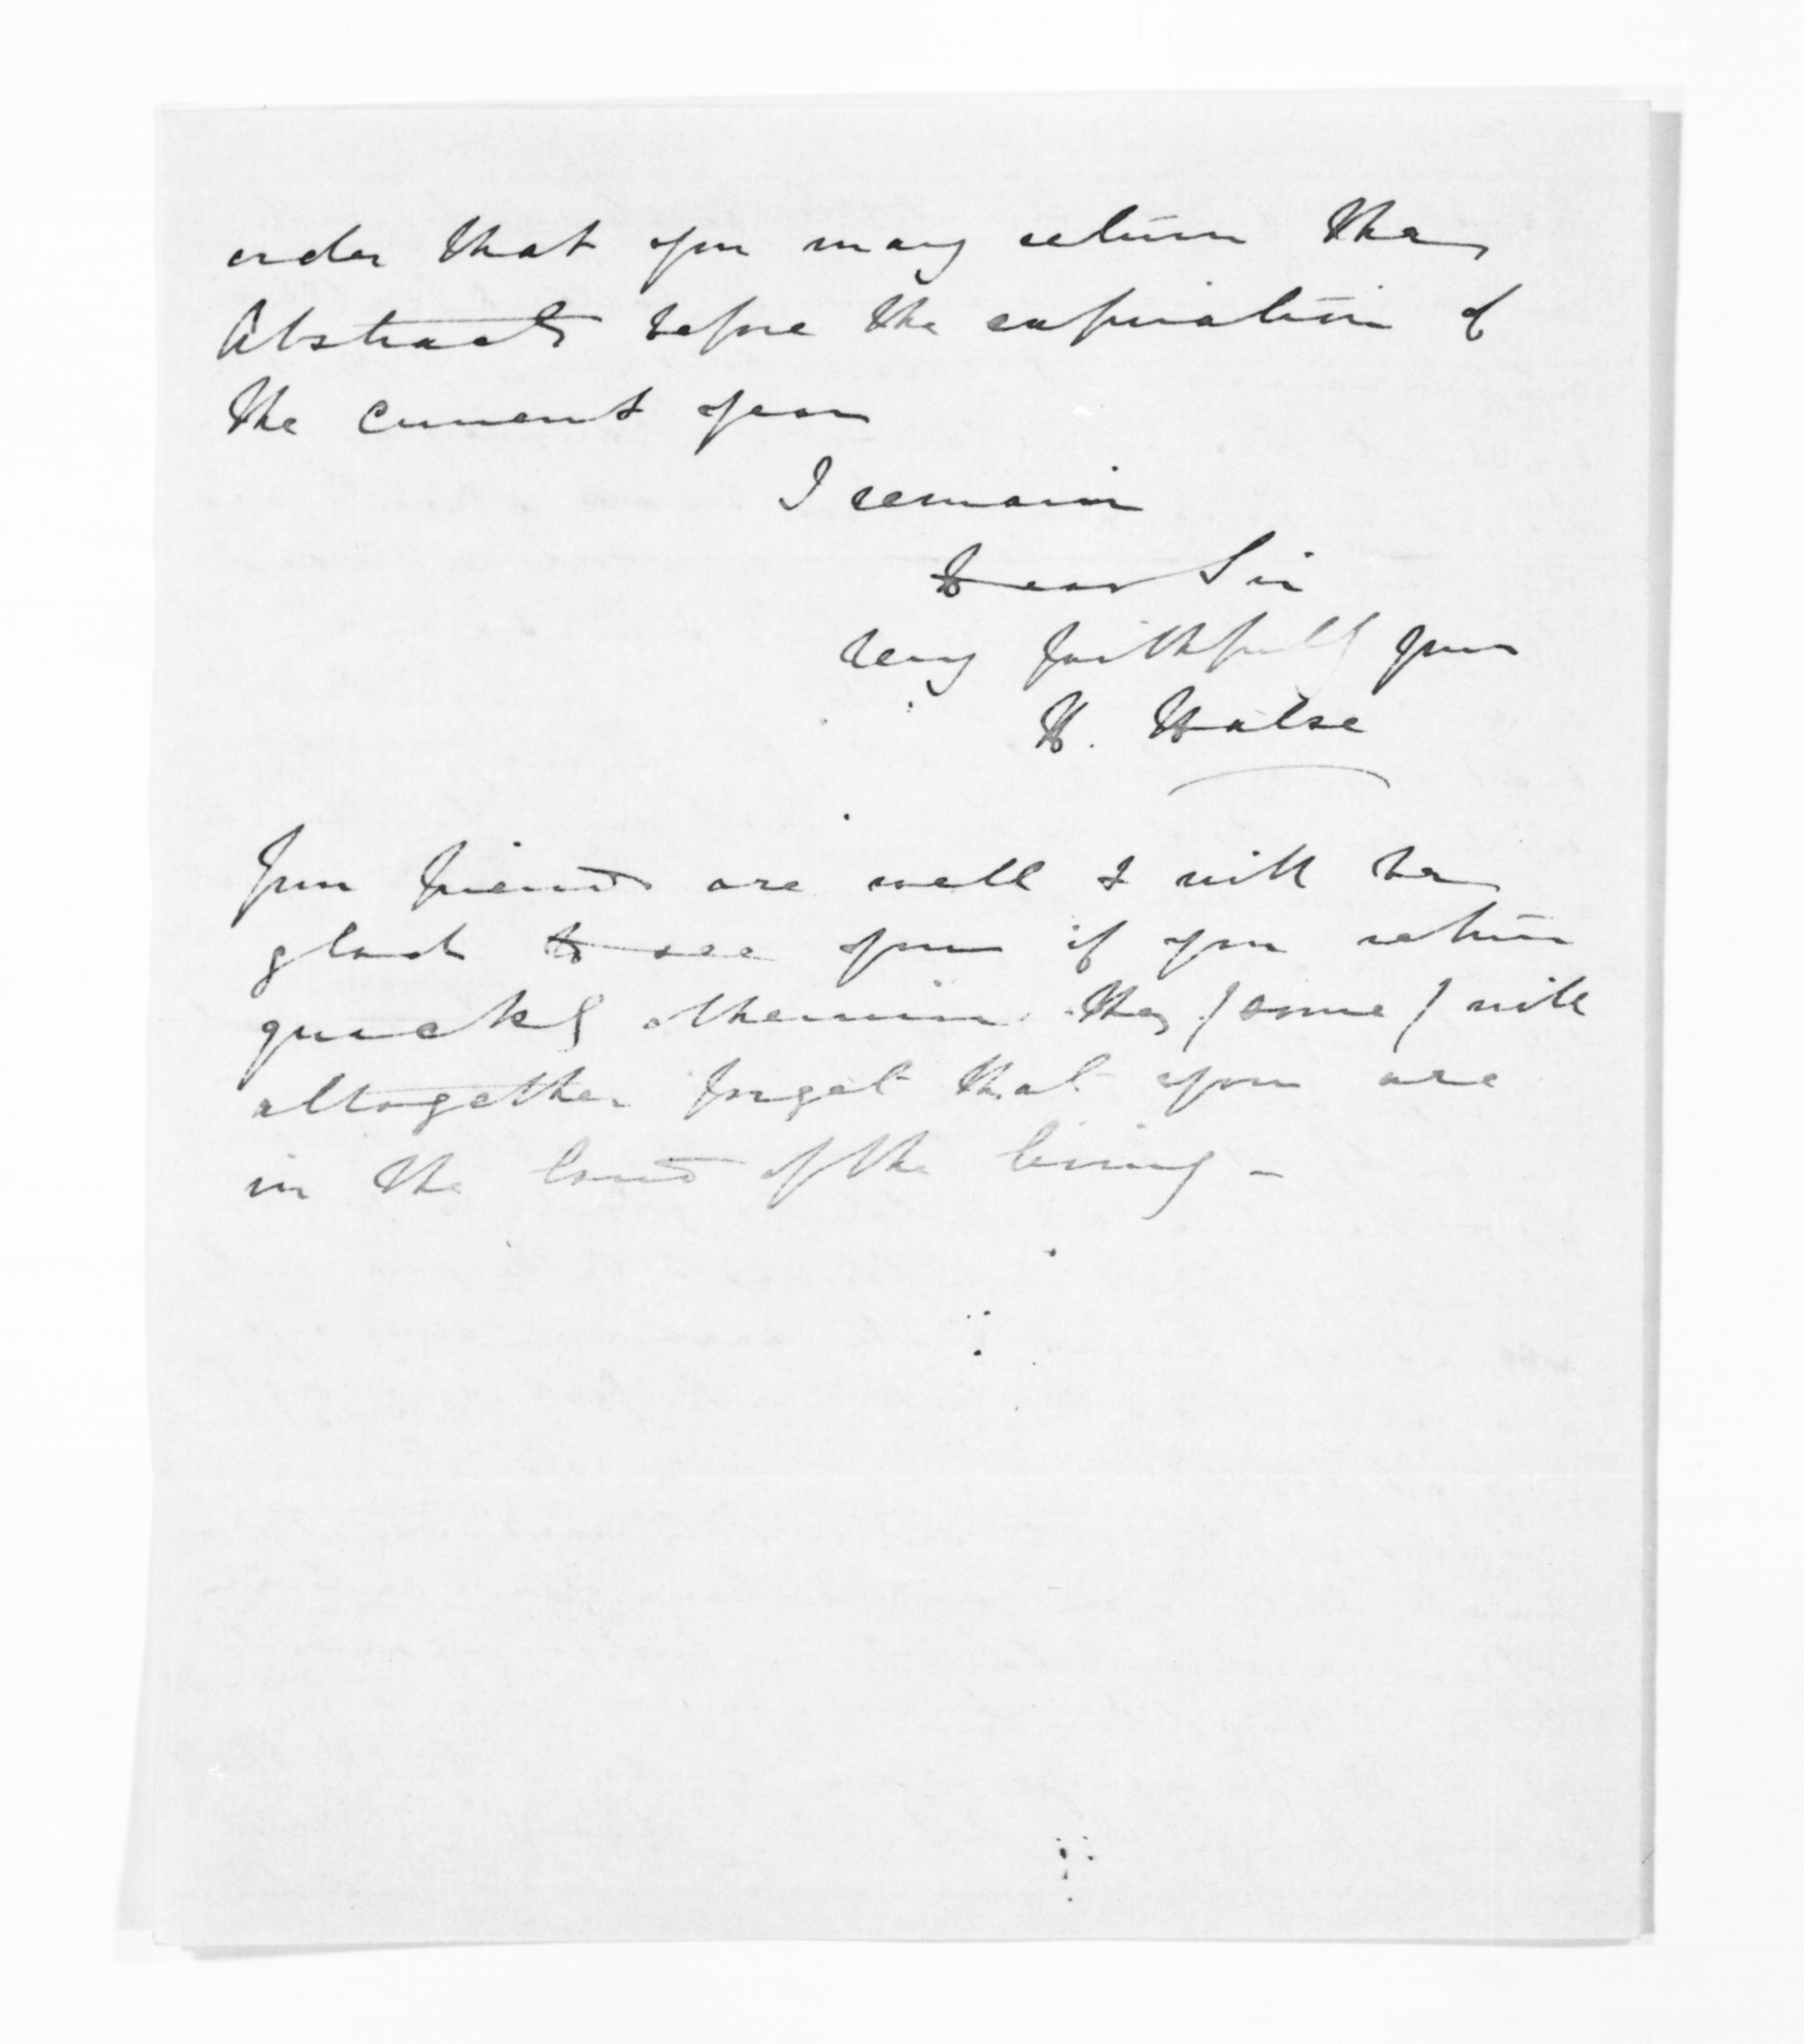 order that you may return the
Abstracts before the expiration of
the current year
I remain
Dear Sir
Very faithfully yours
H. Halse
Your friends are well & will be
glad to see you if you return
quickly otherwise they (some) will
altogether forget that you are
in the land of the living -